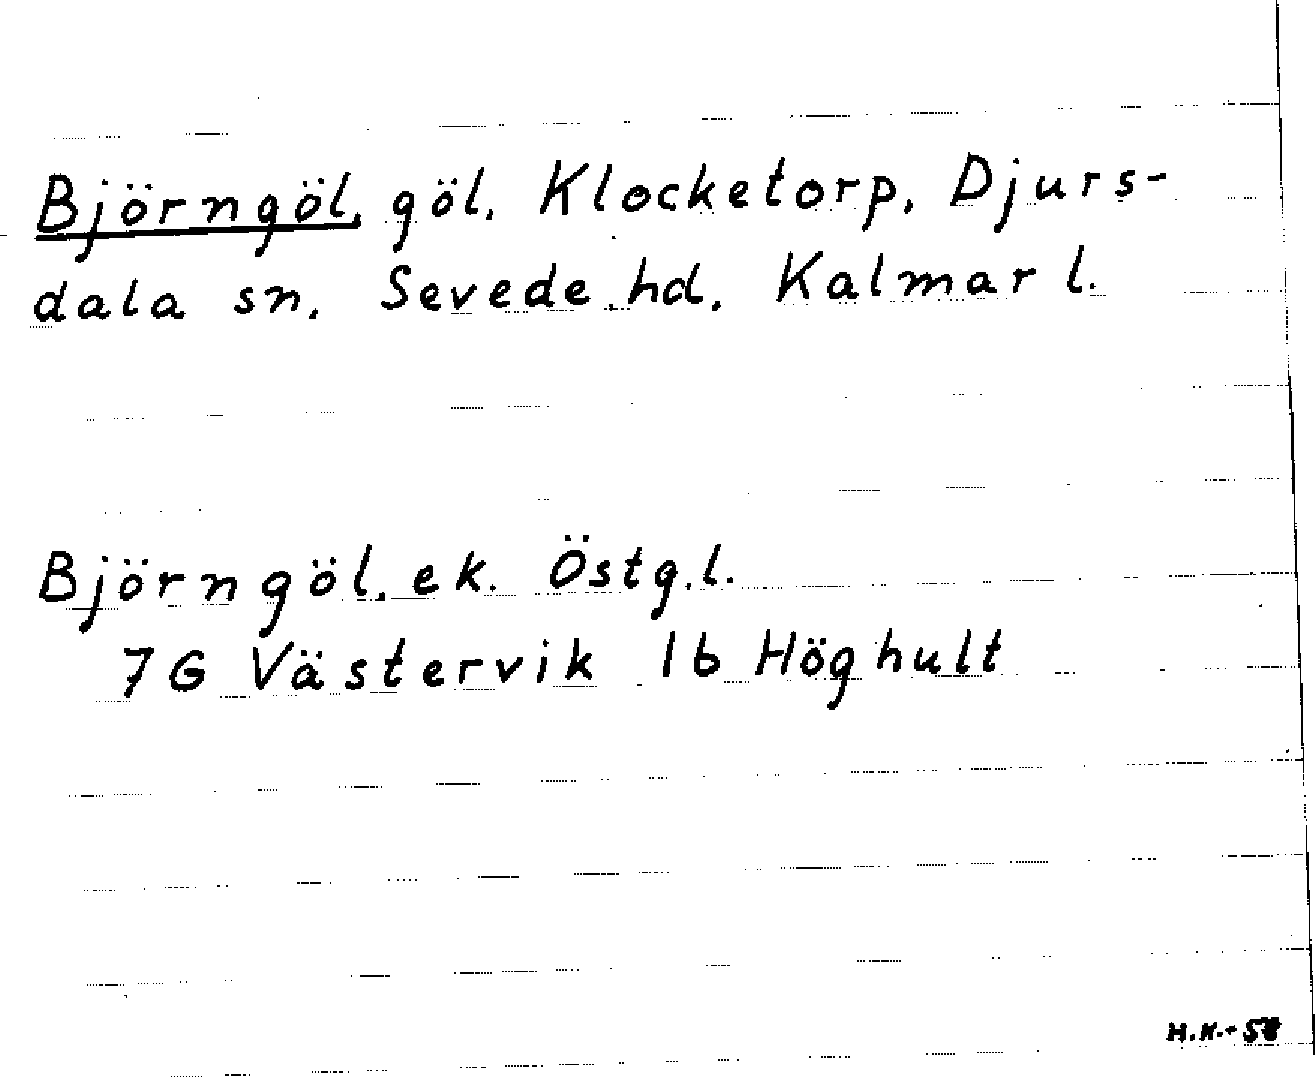 Björngöl, göl, Klocketorp, Djurs-
dala sn, Sevede hd, Kalmar l.
Björngöl, ek. Östg.l.
7G Västervik 1b Höghult